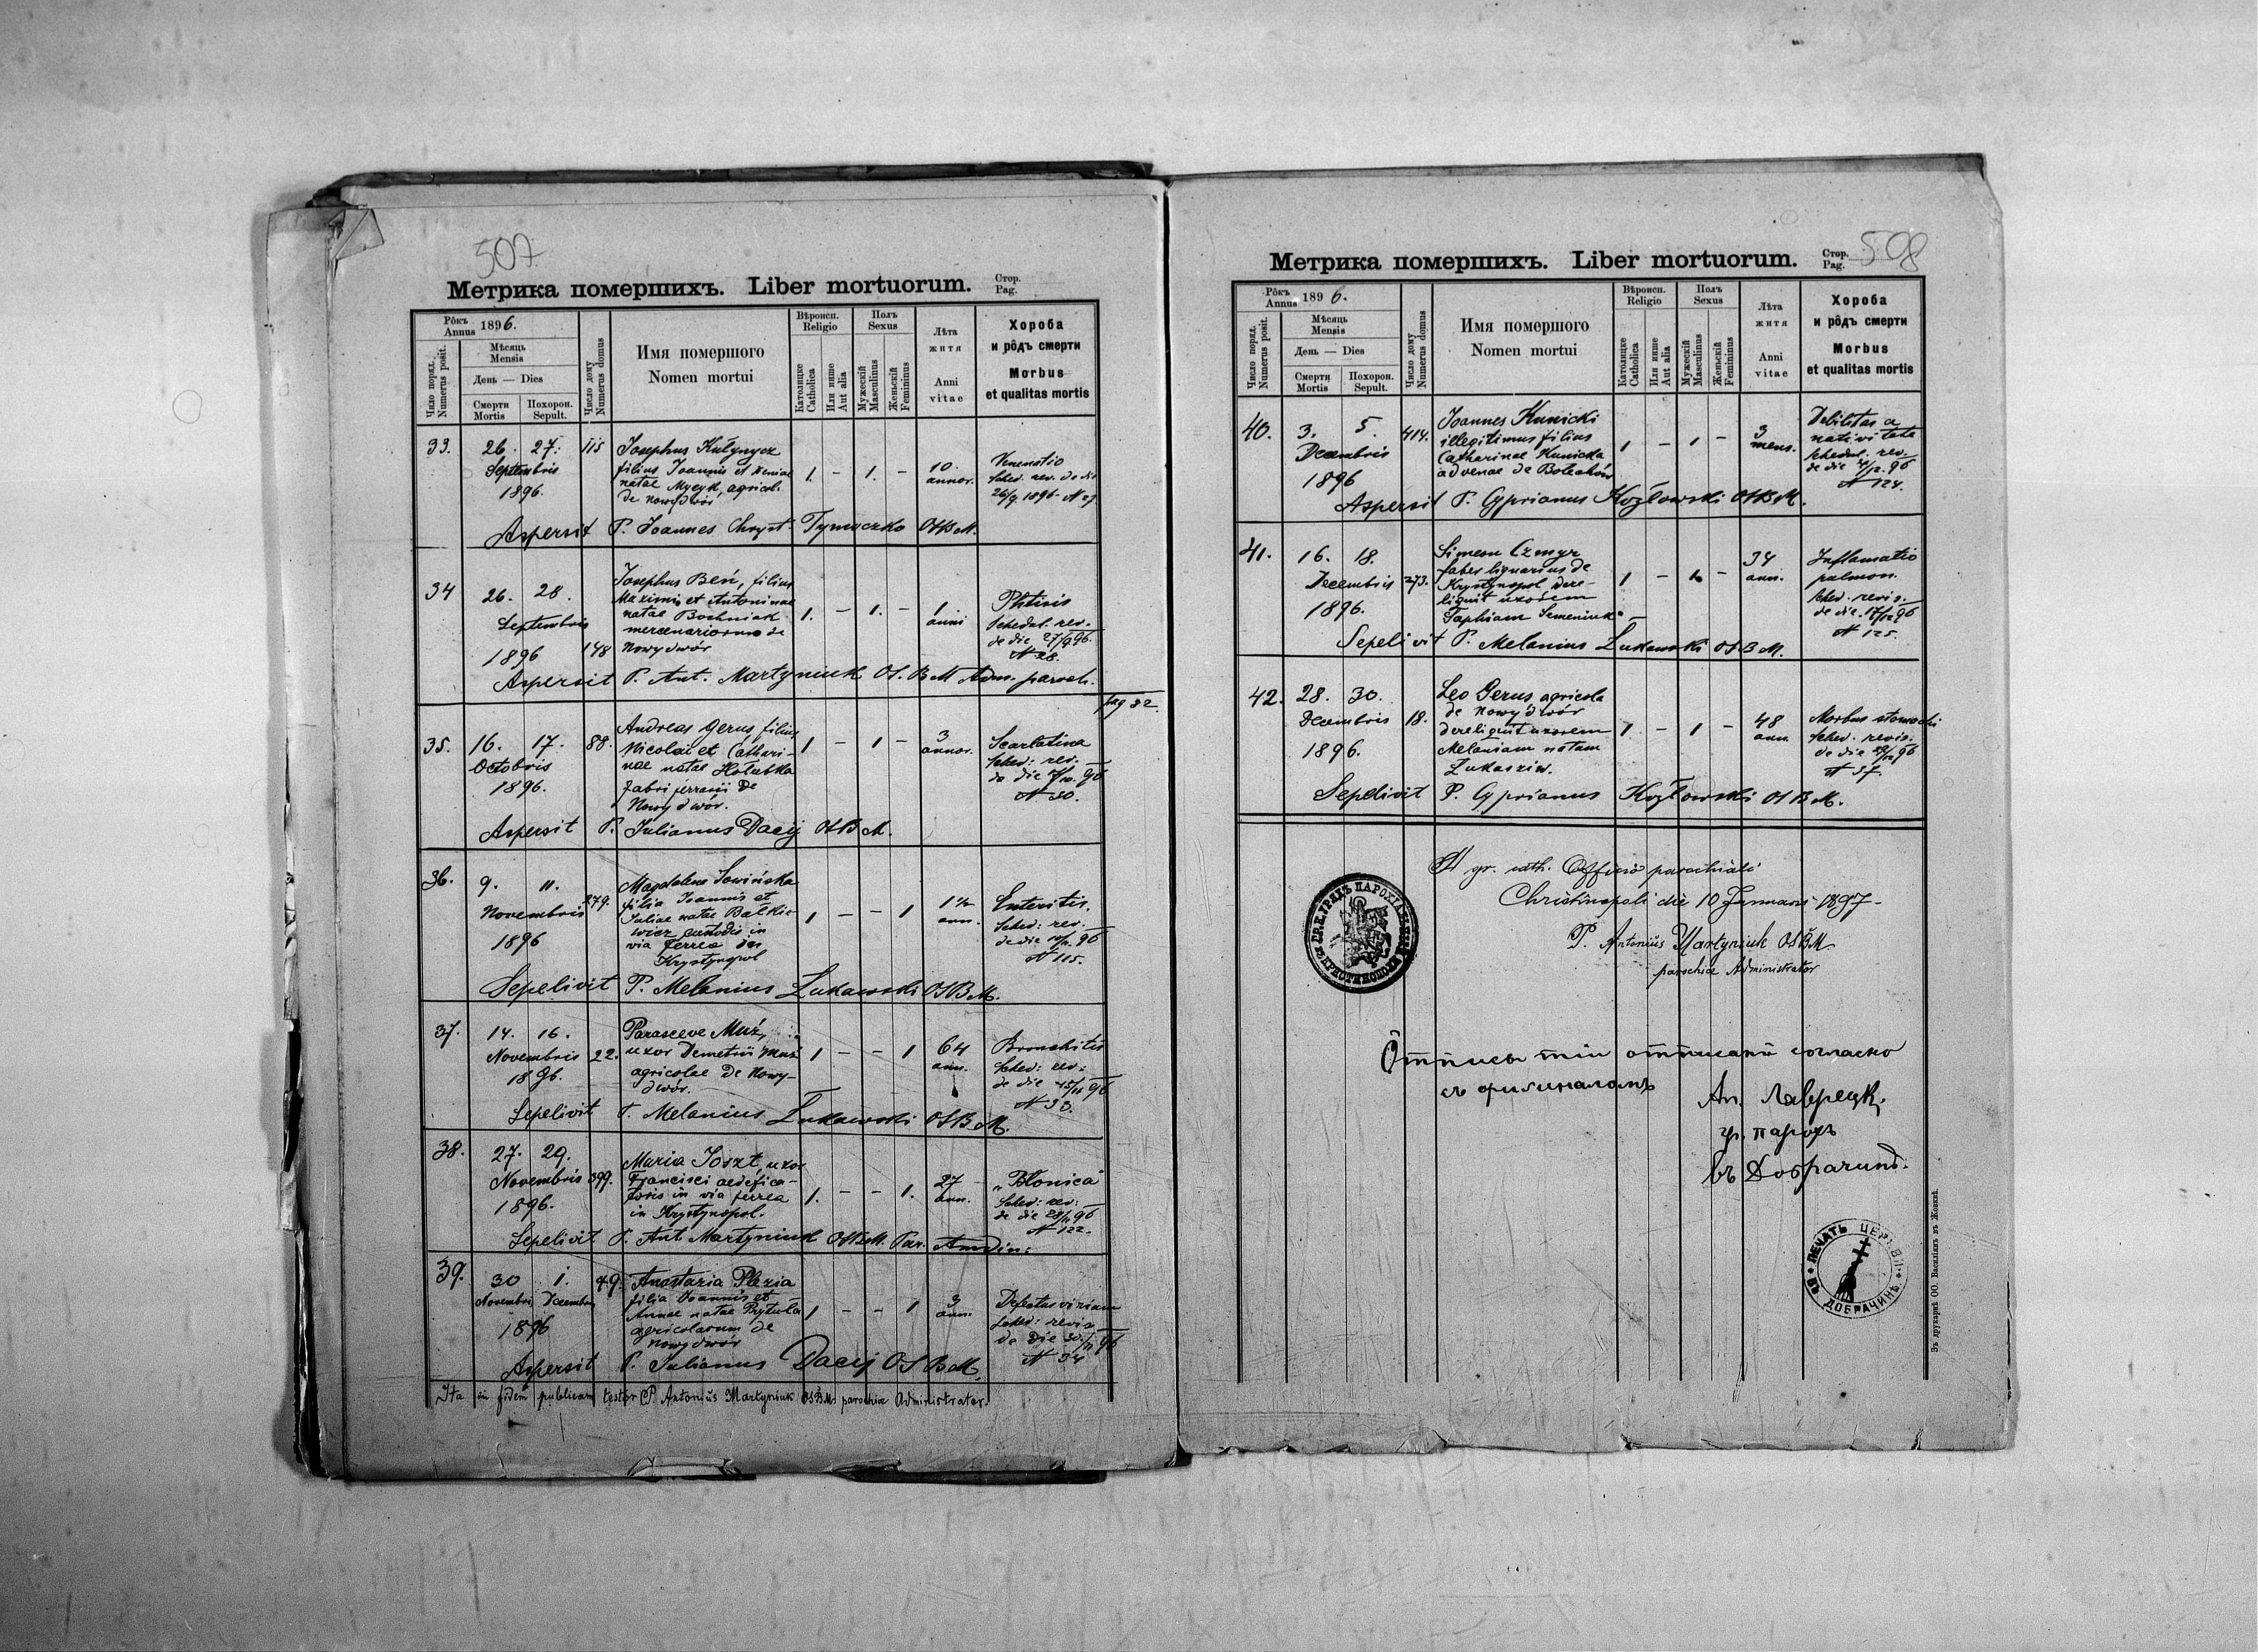 507
Метрика помершихъ. Liber mortuorum.
Стор.
Pag.
Рôкъ
Annus 1896.
Чило поряд.
Numerus posit.
Мѣсяць
Mensis
День — Dies
Смерти
Mortis
Похорон.
Sepult.
Число дому
Numerus domus
Имя помершого
Nomen mortui
Вѣроисп.
Religio
Католицке
Catholica
Или инше
Aut alia
Полъ
Sexus
Мужескій
Masculinus
Женьскій
Femininus
Лѣта
житя
Anni
vitae
Хороба
и рôдъ смерти
Morbus
et qualitas mortis
33. 26. 27. 115
Septembris
1896.
Josephus
filius Joannis et
natae agricol.
de Nowydwór
1. — 1. — 10.
annor.
Sched. rev. de die
26/9 1896 N 27
Aspersit P. Joannes Chryst. Tymoczko OSBM.
34 26. 28.
Septembris
1896 148
Josephus Beń, filius
Maximi et Antoninae
natae Bochniak
mercenariorum de
Nowydwór
1. — 1. — 1
anni
Phtisis
Schedul. rev.
de die 27/9 96.
N 28.
Aspersit P. Ant. Martyniuk O.S.B.M Adm. paroch.
pag 32.
35. 16. 17. 88.
Octobris
1896.
Andreas Gerus filius
Nicolai et Cathari-
nae natae Hołubka
fabri ferrarii de
Nowydwór.
1 — 1 — 3
annor.
Scarlatina
Sched: rev.
de die 96
N 30.
Aspersit P. Julianus Dacij OSBM.
36. 9. 11. 279.
Novembris
1896
Magdalena Sowińska
filia Joannis et
Juliae natae Balkie-
wicz custodis in
via ferrea in
Krystynopol
1 — — 1 1 1/2
ann.
Enteritis.
Sched: rev.
de die 96
N 115.
Sepelivit P. Melanius Łukawski OSBM.
37. 14. 16.
Novembris 22.
1896.
Parasceve Muź,
uxor Demetrii Muź
agricolae de Nowy-
dwór.
1 — — 1 64
ann.
Bronchitis
Sched: rev:
de die 15/11 96
N 30.
Sepelivit P. Melanius Łukawski OSBM.
38. 27. 29.
Novembris 399.
1896.
Maria Joszt, uxor
Francisci aedifica-
toris in via ferrea
in Krystynopol.
1. — — 1. 27
ann.
"Błonica"
Sched: rev:
de die 28/11 96
N 122.
Sepelivit P. Ant. Martyniuk OSBM. Par. Amdin:
39. 30 1. 49.
Novembris Decembris
1896
Anastazia Plexia
filia Joannis et
Annae natae Prytula
agricolarum de
Nowydwór
1 — — 1 3
ann.
Defectus virium
Sched: revis
de die 30/11 96
N 34
Aspersit P. Julianus Dacij OSBM.
Ita in fidem publicam testor P. Antonius Martyniuk OSBM parochiae Administrator.
Метрика помершихъ. Liber mortuorum.
Стор.
Pag. 508
Рôкъ
Annus 1896.
Число поряд.
Numerus posit.
Мѣсяць
Mensis
День — Dies
Смерти
Mortis
Похорон.
Sepult.
Число дому
Numerus domus
Имя помершого
Nomen mortui
Вѣроисп.
Religio
Католицке
Catholica
Или инше
Aut alia
Полъ
Sexus
Мужескій
Masculinus
Женьскій
Femininus
Лѣта
житя
Anni
vitae
Хороба
и рôдъ смерти
Morbus
et qualitas mortis
40. 3. 5. 414.
Decembris
1896
Joannes Kunicki
illegitimus filius
Catharinae Kunicka
advenae de
1 — 1 — 3
mens.
Debilitas a
nativitate
Schedul. rev.
de die 96
N 124.
Aspersit P. Cyprianus Kozłowski OSBM.
41. 16. 18.
Decembris 273.
1896.
Simeon Czmyr
faber lignarius de
Krystynopol dere-
liquit uxorem
Semeniuk
1 — 1 — 34
ann.
Inflamatio
pulmon.
Sched. revis.
de die 17/12 96
N 125.
Sepelivit P. Melanius Łukawski OSBM.
42. 28. 30.
Decembris 18.
1896.
Leo Gerus agricola
de Nowydwór
dereliquit uxorem
Melaniam natam
Łukasziw.
1 — 1 — 48
ann.
Morbus stomachi
Sched. revis.
de die 29/12 96
N 37.
Sepelivit P. Cyprianus Kozłowski OSBM.
gr. cath. Officio parochiali
Christinopoli die 10 Januarii 1897
P. Antonius Martyniuk OSBM
parochiae Administrator
Отписы тіи отписани согласно
съ оригиналомъ
Ан. Лаврецк.
гр. парохъ
въ Добрачинѣ.
ПЕЧАТЬ ЦЕРКВИ
ВЪ ДОБРАЧИНѢ
Зъ друкарнѣ ОО. Василіянъ въ Жовквѣ.